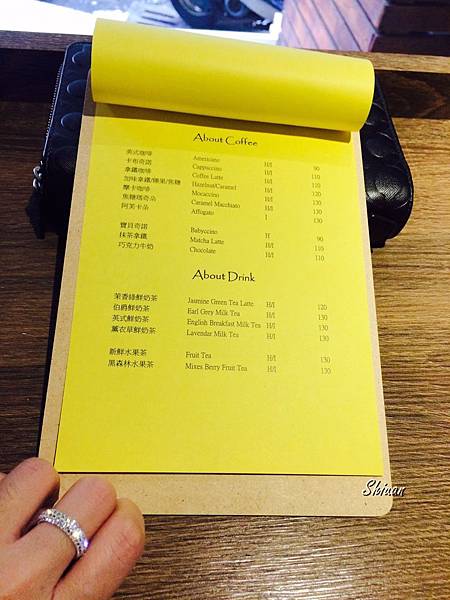 About Coffee
美式咖啡 Americano H/I 90
卡布奇諾 Cappuccino H/I 110
拿鐵咖啡 Coffee Latte H/I 110
加味拿鐵/榛果/焦糖 Hazelnut/Caramel H/I 120
摩卡咖啡 Mocaccino H/I 120
焦糖瑪奇朵 Caramel Macchiato H/I 130
阿芙卡朵 Affogato I 130
寶貝奇諾 Babyccino H 90
抹茶拿鐵 Matcha Latte H/I 110
巧克力牛奶 Chocolate H/I 110
About Drink
茉香綠鮮奶茶 Jasmine Green Tea Latte H/I 120
伯爵鮮奶茶 Earl Grey Milk Tea H/I 130
英式鮮奶茶 English Breakfast Milk Tea H/I 130
薰衣草鮮奶茶 Lavendar Milk Tea H/I 130
新鮮水果茶 Fruit Tea H/I 130
黑森林水果茶 Mixes Berry Fruit Tea H/I 130
Shiuan